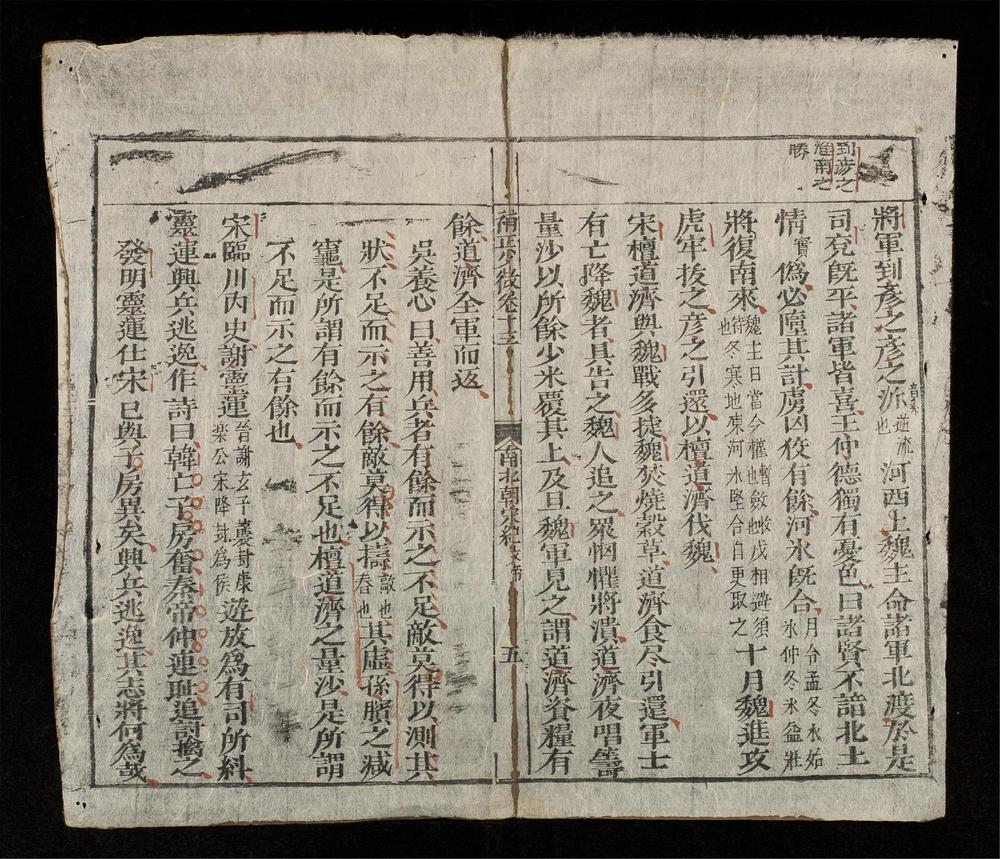 到彦之
淮南之
勝
將軍到彥之彥之泝
音素
逆流
也
河西上魏主命諸軍北渡於是
司兗旣平諸軍皆喜王仲德獨有憂色曰諸賢不諳北土
情
實
僞必墮其計虜凶狡有餘河水旣合
月令孟冬水始
氷仲冬氷益壯
將復南來
魏主曰當今權暫斂戍相避須
待冬寒地凍河氷堅合自更取之
也
十月魏進攻
虎牢拔之彥之引還以檀道濟伐魏
宋檀道濟與魏戰多捷魏焚燒穀草道濟食尽引還軍士
有亡降魏者具告之魏人追之眾恟懼將潰道濟夜唱籌
量沙以所餘少米覆其上及旦魏軍見之謂道濟資糧有
卷十三
南北朝宋紀文帝
五
餘道濟全軍而返
吳養心曰善用兵者有餘而示之不足敵莫得以測其
狀不足而示之有餘敵莫得以擣
敵也
舂也
其虛孫臏之減
竈是所謂有餘而示之不足也檀道濟之量沙是所謂
不足而示之有餘也
宋臨川內史謝靈運
晉謝玄子襲封康
樂公宋降封爲侯
遊放爲有司所糾
靈運興兵逃逸作詩曰韓亡子房奮秦帝仲連耻追討擒之
發明靈運仕宋已與子房異矣興兵逃逸其志將何爲哉